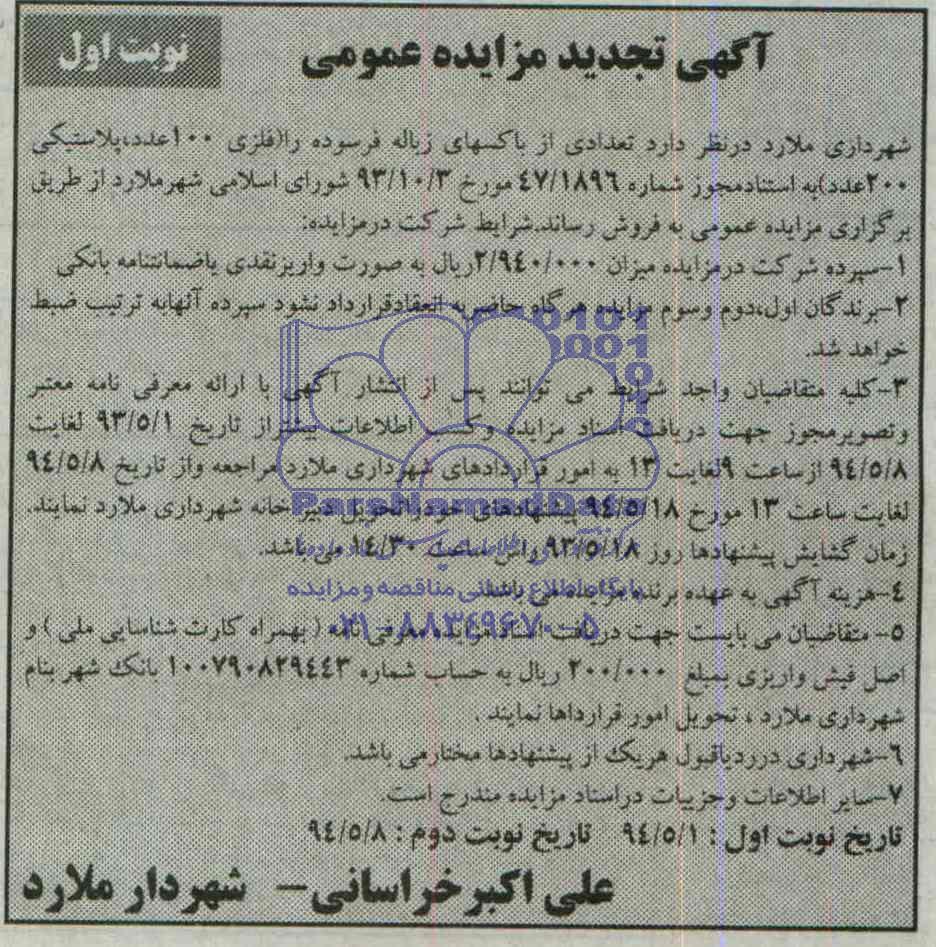 آگهی تجدید مزایده عمومی
نوبت اول
شهرداری ملارد درنظر دارد تعدادی از باکسهای زباله فرسوده را(فلزی ۱۰۰عدد،پلاستیکی
۲۰۰عدد)به استنادمجوز شماره ۴۷/۱۸۹۶ مورخ ۹۳/۱۰/۳ شورای اسلامی شهرملارد از طریق
برگزاری مزایده عمومی به فروش رساند.شرایط شرکت درمزایده:
۱-سپرده شرکت درمزایده میزان ۲/۹۴۰/۰۰۰ریال به صورت واریزنقدی یاضمانتنامه بانکی
۲-برندگان اول،دوم وسوم مزایده هرگاه حاضربه انعقادقرارداد نشود سپرده آنهابه ترتیب ضبط
خواهد شد.
۳-کلیه متقاضیان واجد شرایط می توانند پس از انتشار آگهی با ارائه معرفی نامه معتبر
وتصویرمجوز جهت دریافت اسناد مزایده وکسب اطلاعات بیشتراز تاریخ ۹۳/۵/۱ لغایت
۹۴/۵/۸ ازساعت ۹لغایت ۱۳ به امور قراردادهای شهرداری ملارد مراجعه واز تاریخ ۹۴/۵/۸
لغایت ساعت ۱۳ مورخ ۹۴/۵/۱۸ پیشنهادهای خودراتحویل دبیرخانه شهرداری ملارد نمایند.
زمان گشایش پیشنهادها روز ۹۳/۵/۱۸ راس ساعت ۱۴/۳۰ می باشد.
۴-هزینه آگهی به عهده برنده مزایده می باشد.
۵- متقاضیان می بایست جهت دریافت اسناد مزایده معرفی نامه ( بهمراه کارت شناسایی ملی ) و
اصل فیش واریزی بمبلغ ۲۰۰/۰۰۰ ریال به حساب شماره ۱۰۰۷۹۰۸۲۹۴۴۳ بانک شهر بنام
شهرداری ملارد ، تحویل امور قرارداها نمایند .
۶-شهرداری درردیاقبول هریک از پیشنهادها مختارمی باشد.
۷-سایر اطلاعات وجزییات دراسناد مزایده مندرج است.
تاریخ نوبت اول : ۹۴/۵/۱ تاریخ نوبت دوم : ۹۴/۵/۸
علی اکبرخراسانی- شهردار ملارد
ParsNamadData
پایگاه اطلاع رسانی مناقصه و مزایده
۰۲۱-۸۸۳۴۹۶۷۰-۵